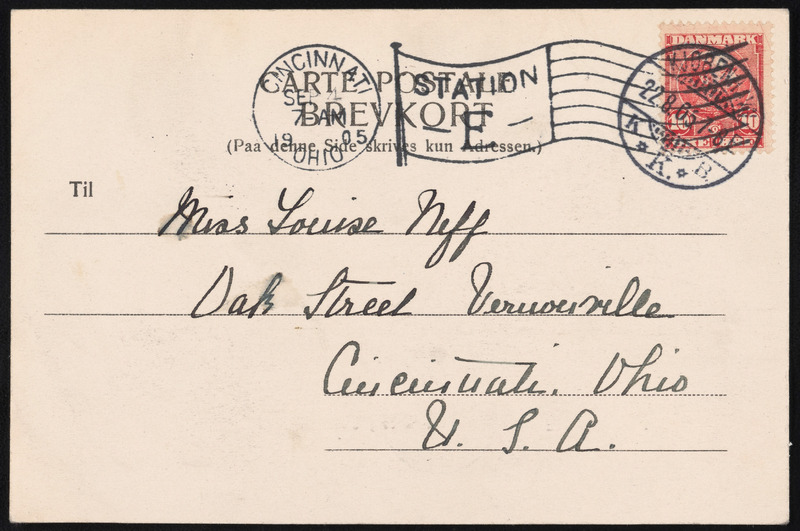 CARTE POSTALE
BREVKORT
(Paa denne Side skrives kun Adressen.)
CINCINNATI
SEP 4
7 AM
1905
OHIO
STATION
E
DANMARK
10 10
KJØBENHAVN
22.8.05
K K. B.
Til
Miss Louise Neff
Oak Street Vernonville
Cincinnati. Ohio
U. S. A.